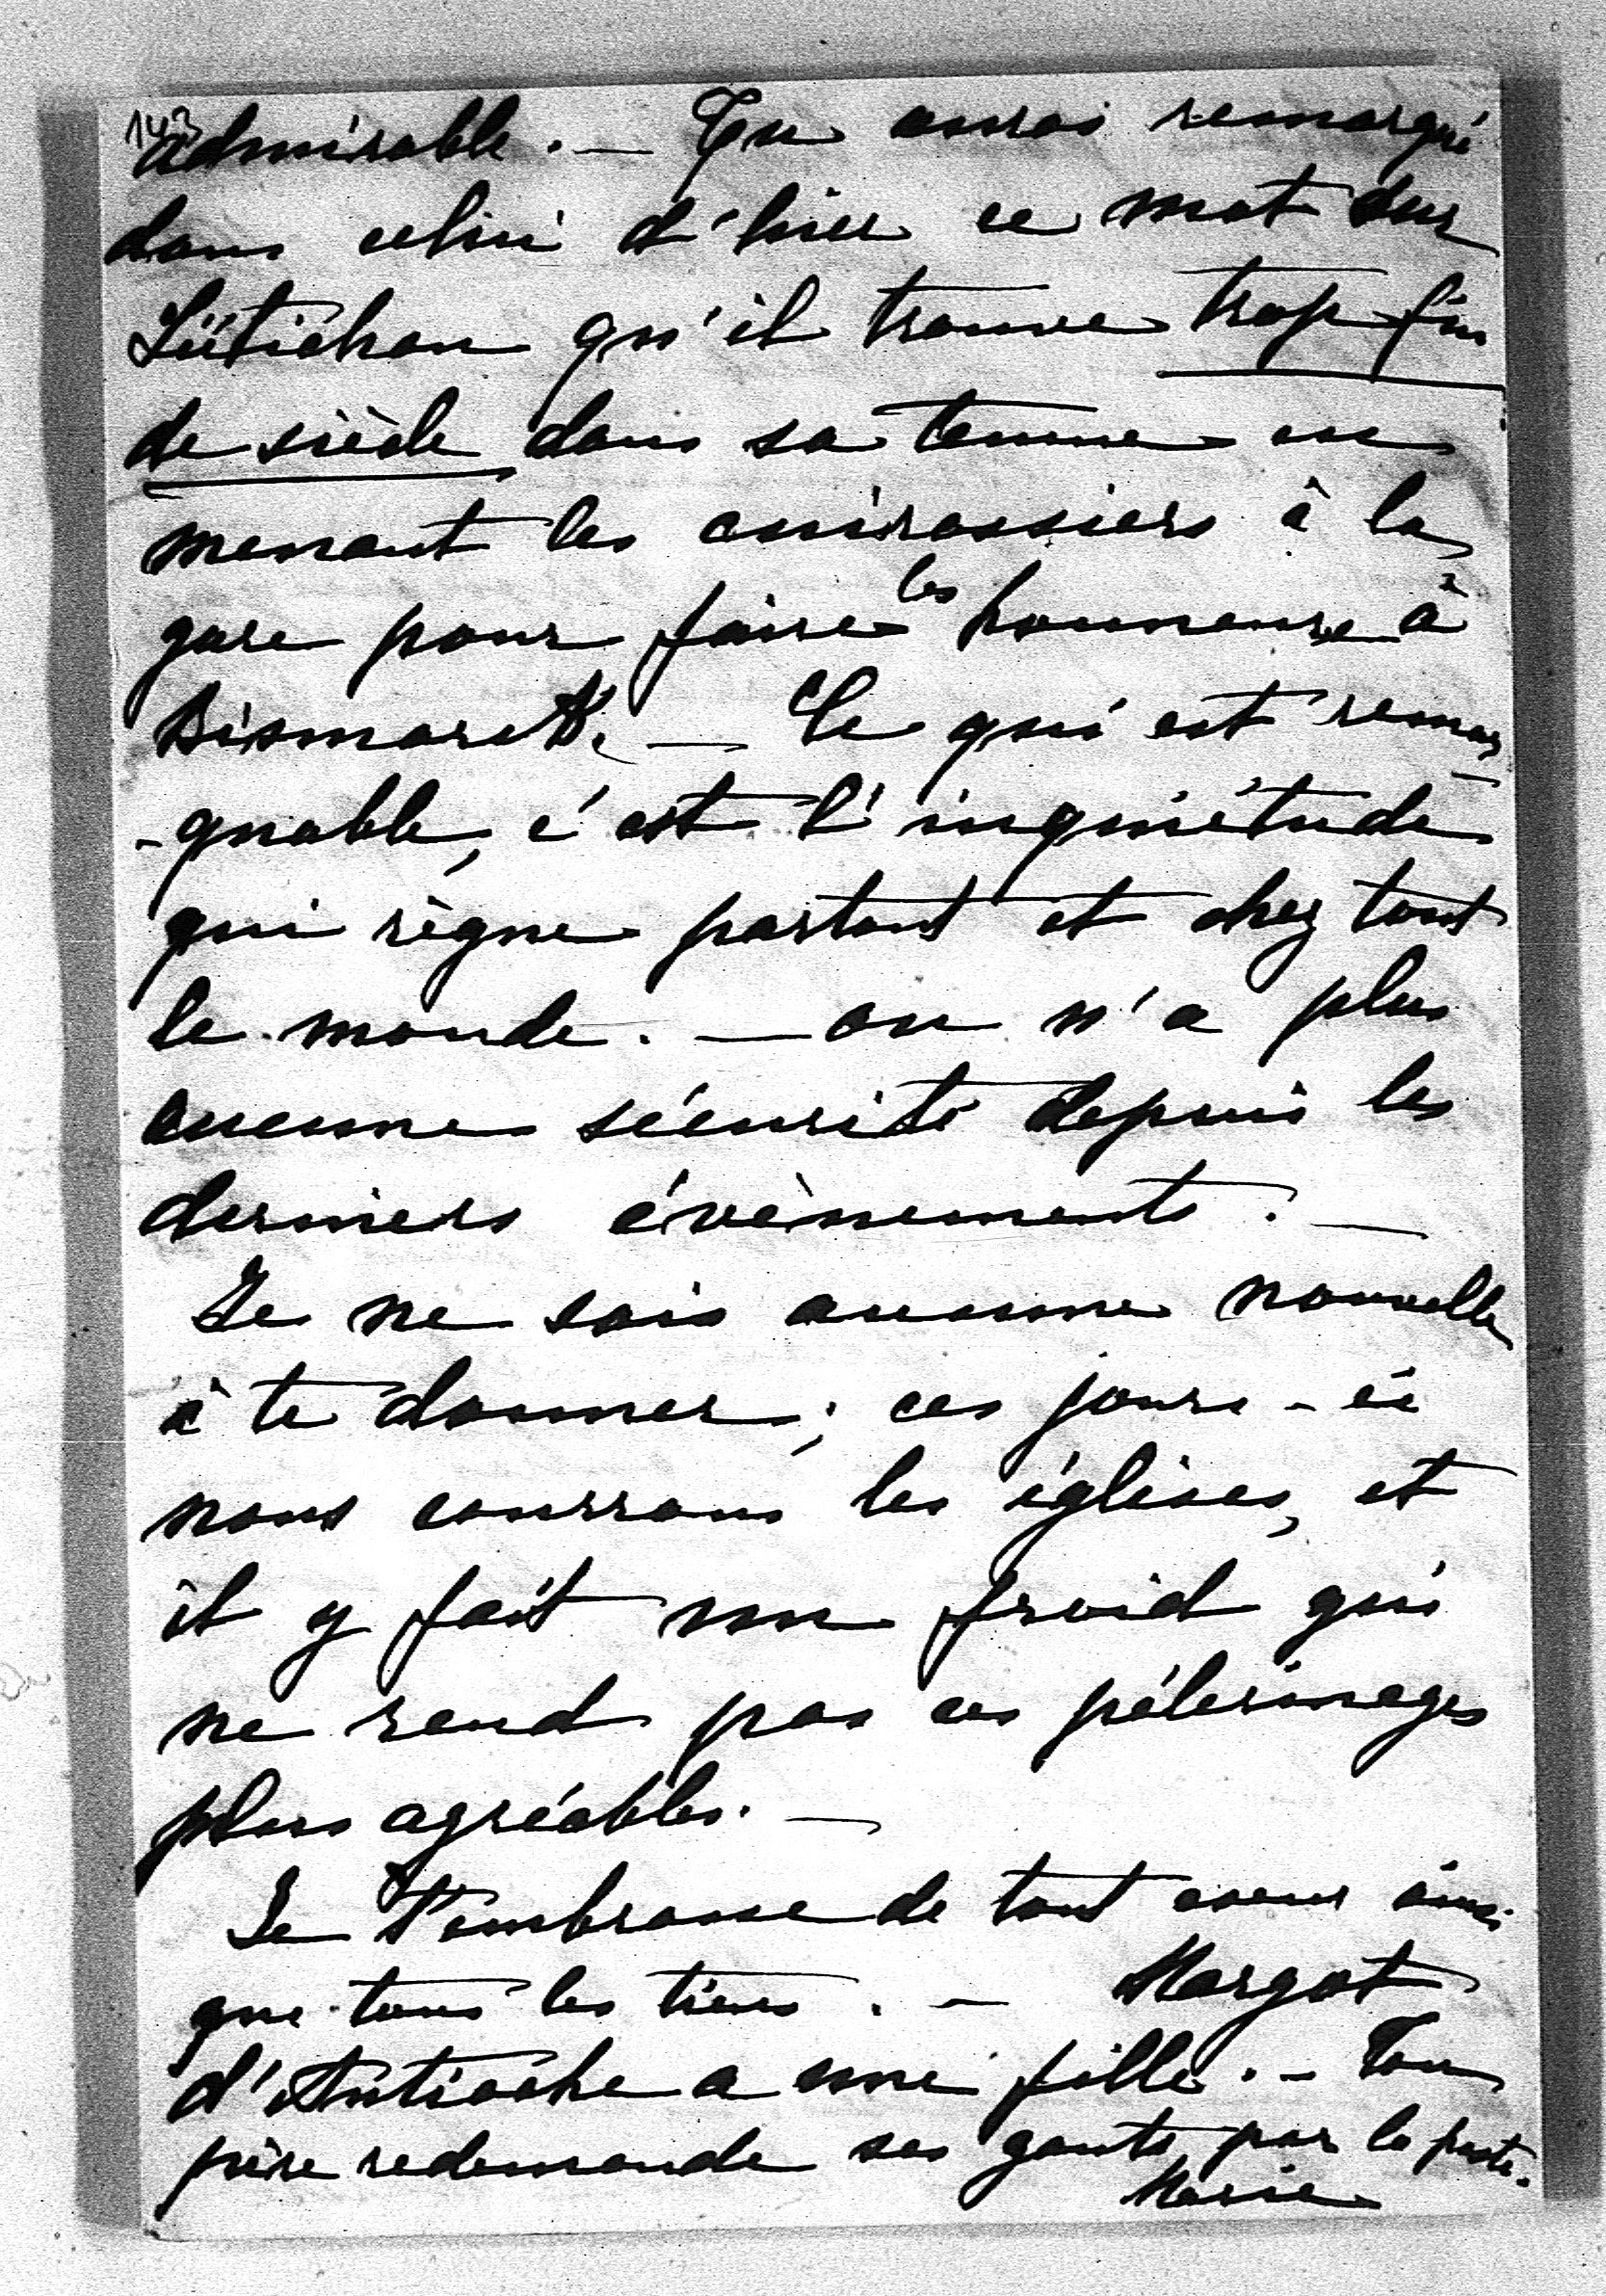 143
admirable. — Tu auras remarqué
dans celui d'hier ce mot sur
qu'il trouve trop fin
de siècle dans sa tenue en
menant les cuirassiers à la
gare pour faire les honneurs à
Bismarck. — Ce qui est remar-
-quable, c'est l'inquiétude
qui règne partout et chez tout
le monde. — on n'a plus
aucune sécurité depuis les
derniers évènements. —
Je ne sais aucune nouvelle
à te donner; ces jours-ci
nous courrons les églises, et
il y fait un froid qui
ne rend pas ces pélerinages
plus agréables. —
Je t'embrasse de tout coeur ainsi
que tous les tiens. — Margot
d'Antioche a une fille. — Ton
père redemande ses gants par la poste.
Marie